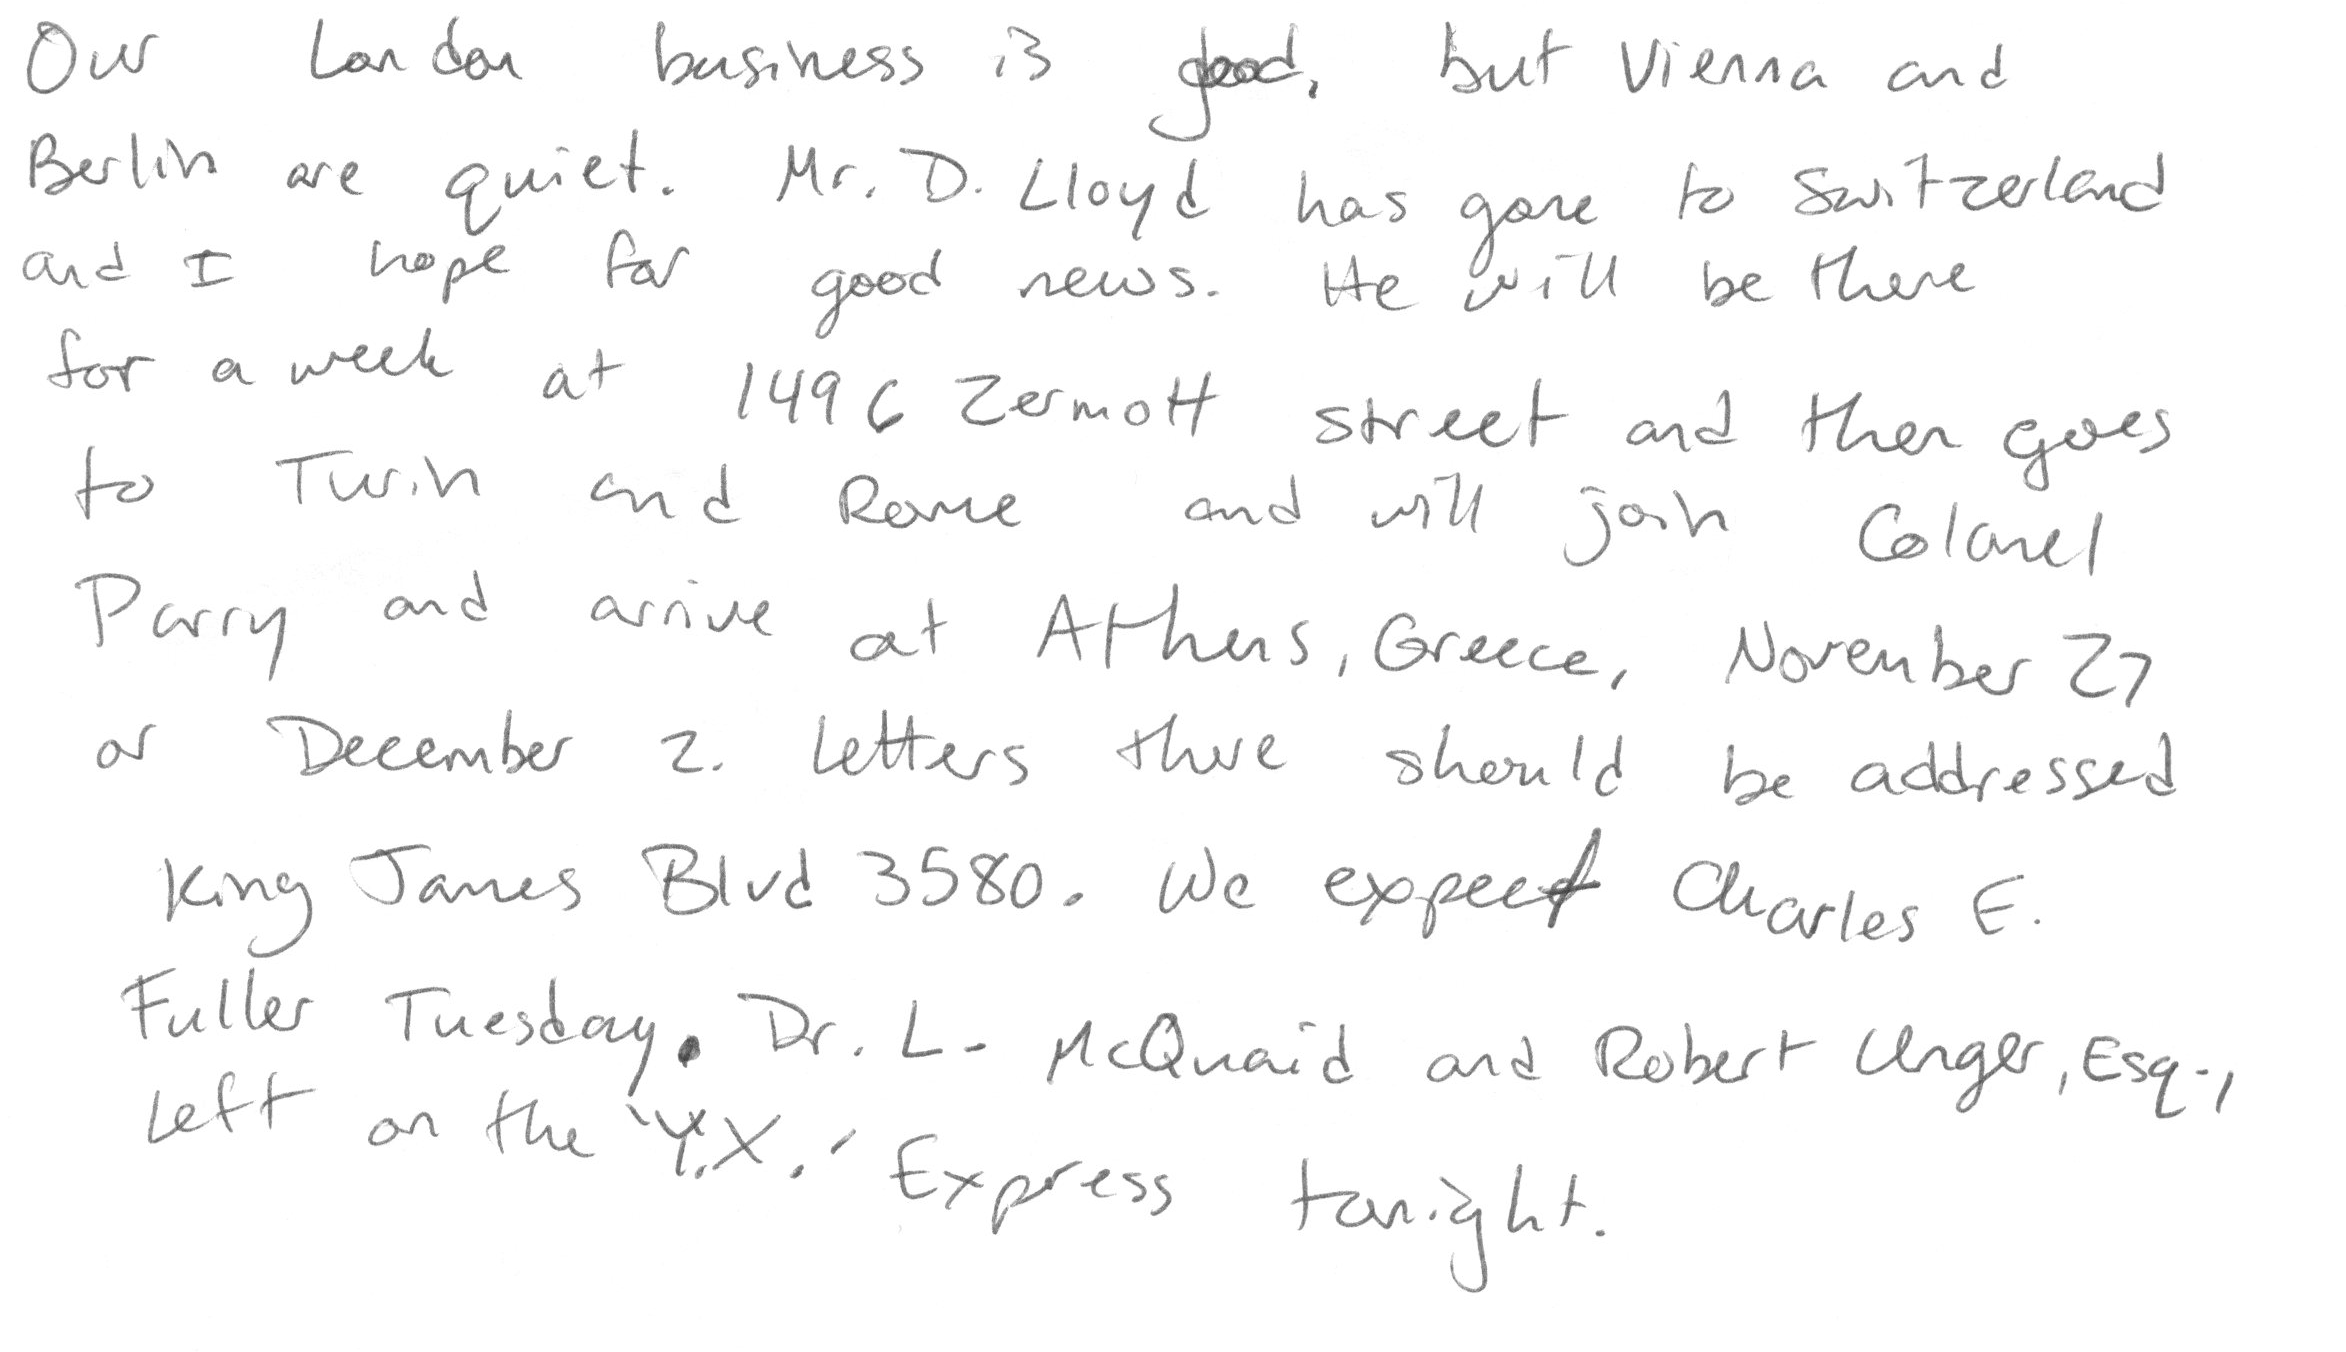 Our London business is good, but Vienna and
Berlin are quiet. Mr. D. Lloyd has gone to Switzerland
and I hope for good news. He will be there
for a week at 1496 Zermott street and then goes
to Turin and Rome and will join Colonel
Parry and arrive at Athens, Greece, November 27
or December 2. Letters there should be addressed
King James Blvd 3580. We expect Charles E.
Fuller Tuesday. Dr. L. McQuaid and Robert Unger, Esq.,
left on the "Y.X." Express tonight.